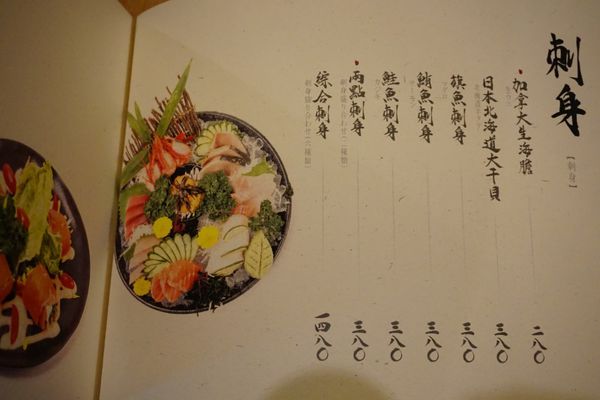 刺身
【刺身】
加拿大生海膽
日本北海道大干貝
旗魚刺身
マグロ
鮪魚刺身
鮭魚刺身
兩點刺身
刺身盛り合わせ（二種類）
綜合刺身
二八〇
三八〇
三八〇
三八〇
三八〇
三八〇
一四八〇